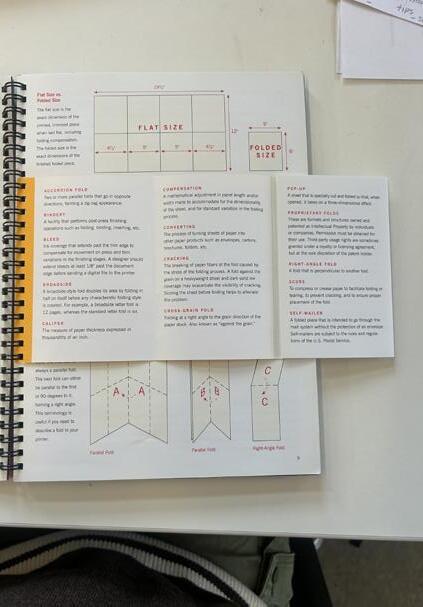 tips
Flat Size vs.
Folded Size
The flat size is the
exact dimension of the
printed, trimmed piece
when laid flat, including
folding compensation.
The folded size is the
exact dimensions of the
finished folded piece.
FLAT SIZE
12"
5"
5"
5"
6"
FOLDED
SIZE
ACCORDION FOLD
Two or more parallel folds that go in opposite
directions, forming a zig-zag appearance.
BINDERY
A facility that performs post-press finishing
operations such as folding, binding, inserting, etc.
BLEED
Ink coverage that extends past the trim edge to
compensate for movement on press and trim
variations in the finishing stages. A designer should
extend bleeds at least 1/8" past the document
edge before sending a digital file to the printer.
BROADSIDE
A broadside-style fold doubles its area by folding in
half on itself before any characteristic folding style
is created. For example, a broadside letter fold is
12 pages, whereas the standard letter fold is six.
CALIPER
The measure of paper thickness expressed in
thousandths of an inch.
COMPENSATION
A mathematical adjustment in panel length and/or
width made to accommodate for the dimensionality
of the sheet, and for standard variation in the folding
process.
CONVERTING
The process of turning sheets of paper into
other paper products such as envelopes, cartons,
brochures, folders, etc.
CRACKING
The breaking of paper fibers at the fold caused by
the stress of the folding process. A fold against the
grain on a heavyweight sheet and dark solid ink
coverage may exacerbate the visibility of cracking.
Scoring the sheet before folding helps to alleviate
the problem.
CROSS-GRAIN FOLD
Folding at a right angle to the grain direction of the
paper stock. Also known as "against the grain."
POP-UP
A sheet that is specially cut and folded so that, when
opened, it takes on a three-dimensional effect.
PROPRIETARY FOLDS
These are formats and structures owned and
patented as Intellectual Property by individuals
or companies. Permission must be obtained for
their use. Third party usage rights are sometimes
granted under a royalty or licensing agreement,
but at the sole discretion of the patent holder.
RIGHT-ANGLE FOLD
A fold that is perpendicular to another fold.
SCORE
To compress or crease paper to facilitate folding or
tearing, to prevent cracking, and to ensure proper
placement of the fold.
SELF-MAILER
A folded piece that is intended to go through the
mail system without the protection of an envelope.
Self-mailers are subject to the rules and regula-
tions of the U.S. Postal Service.
always a parallel fold.
The next fold can either
be parallel to the first
or 90-degrees to it,
forming a right angle.
This terminology is
useful if you need to
describe a fold to your
printer.
A
A
B
B
C
C
Parallel Fold
Parallel Fold
Right-Angle Fold
9